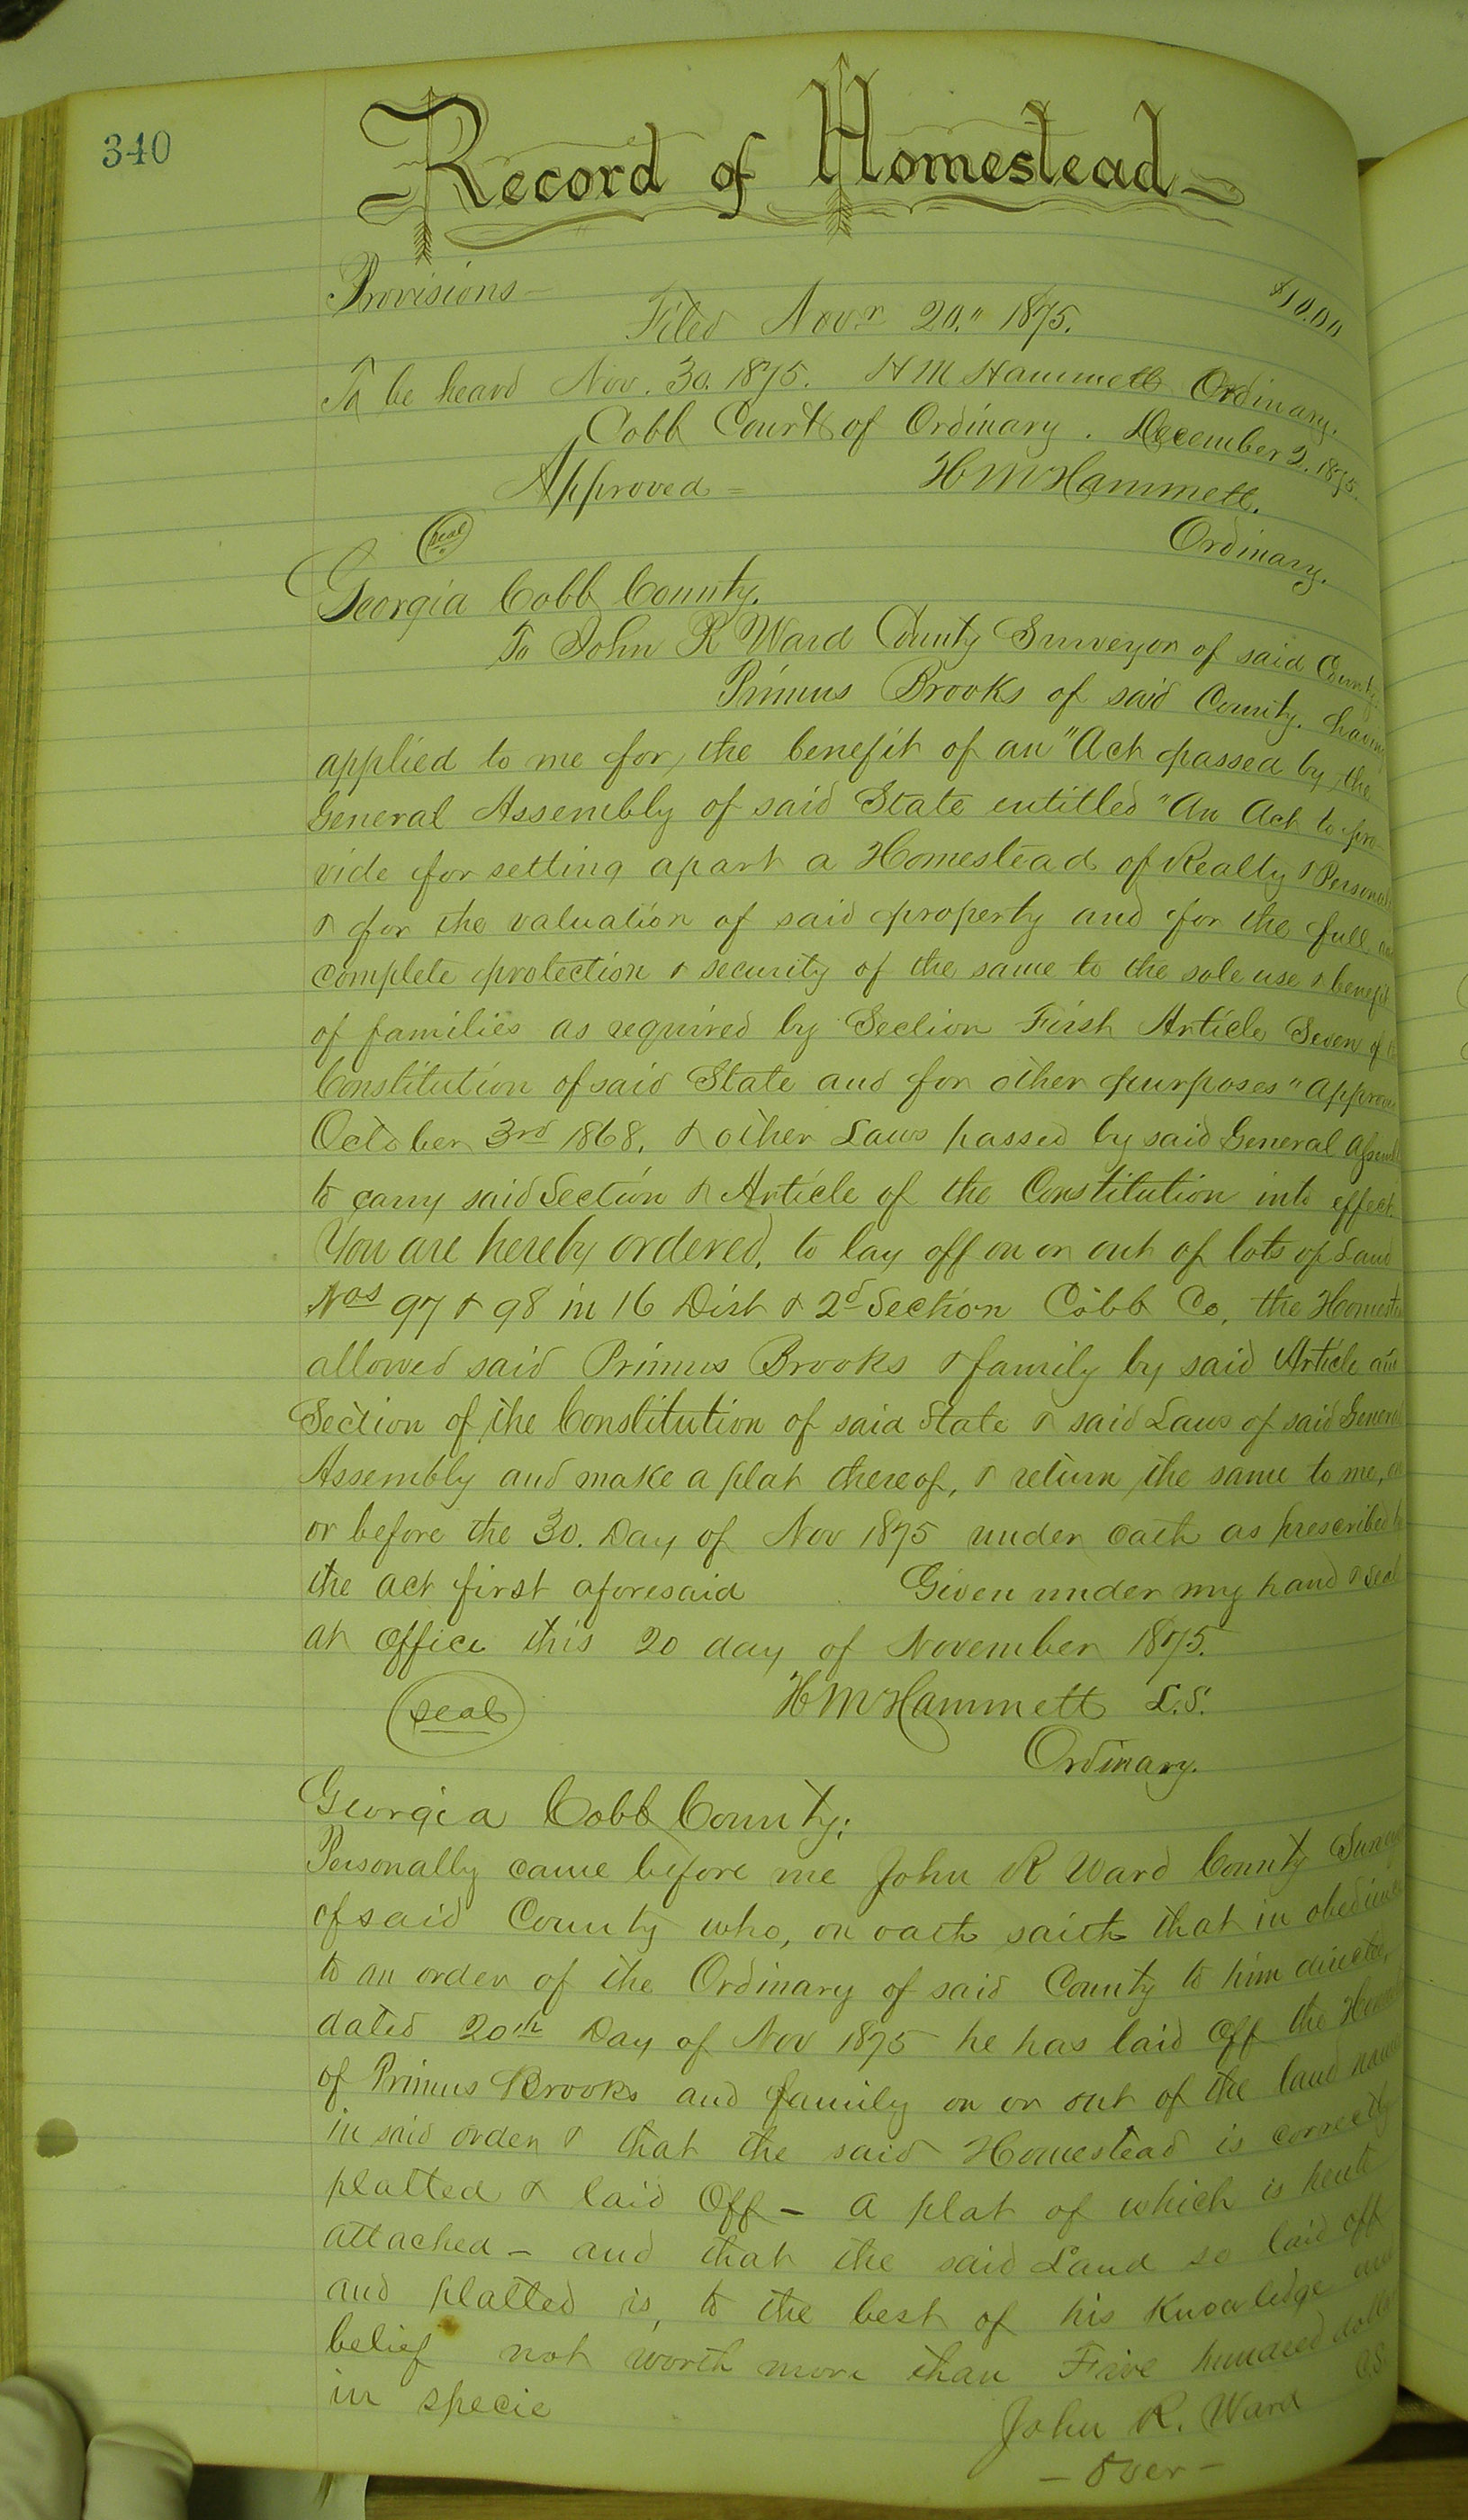 340
Record of Homestead
Provisions — $10.00
Filed Novr 20." 1875.
To be heard Nov. 30. 1875. H M Hammett Ordinary.
Cobb Court of Ordinary. December 2. 1875.
Approved = H M Hammett.
Seal
Ordinary.
Georgia Cobb County.
To John R Ward County Surveyor of said County.
Primus Brooks of said County. having
applied to me for the benefit of an "Act passed by the
General Assembly of said State entitled "An Act to pro-
vide for setting apart a Homestead of Realty &
& for the valuation of said property and for the full
complete protection & security of the same to the sole use & benefit
of families as required by Section First Article Seven of
Constitution of said State and for other purposes"
October 3rd 1868, & other Laws passed by said General
to carry said Section & Article of the Constitution into effect.
You are hereby ordered, to lay off on or out of lots of Land
Nos 97 & 98 in 16 Dist & 2d Section Cobb Co, the
allowed said Primus Brooks & family by said Article
Section of the Constitution of said State & said Laws of said General
Assembly and make a plat thereof, & return the same to me,
or before the 30. Day of Nov 1875 under oath as prescribed
the act first aforesaid Given under my hand & seal
at office this 20 day of November 1875.
Seal H M Hammett L.S.
Ordinary.
Georgia Cobb County:
Personally came before me John R Ward County
of said County who, on oath saith that in
to an order of the Ordinary of said County to him
dated 20th Day of Nov 1875 he has laid Off the
of Primus Brooks and family on or out of the land
in said order & that the said Homestead is correctly
platted & laid Off — A plat of which is
attached — and that the said Land so laid off
and platted is, to the best of his Knowledge
belief not worth more than Five hundred
in specie
John R. Ward C.S.
— Over —